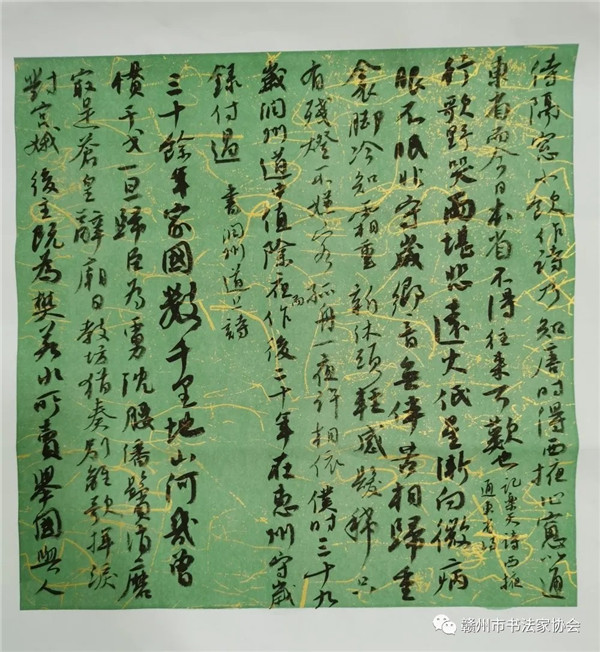 侍隔窓小飲作詩乃知唐時得西掖作窓以通
東省而今日本省不得往來可歎也 記樂天詩西掖
通東省詩
行歌野哭兩堪悲遠火低星漸向微病
眼不眠非守歲鄉音無伴苦相歸重
衾脚冷知霜重新沐頭輕感髮稀只
有殘燈不嫌客孤舟一夜許相依僕時三十九
歲潤州道中值除夜作後二十年在惠州守歲
錄付過 書潤州道上詩
三十餘年家國數千里地山河幾曾
慣干戈一旦歸臣為虜沈腰潘鬢消磨
最是蒼皇辭廟日教坊猶奏別離歌揮淚
對宮娥後主既為樊若水所賣舉國與人
赣州市书法家协会